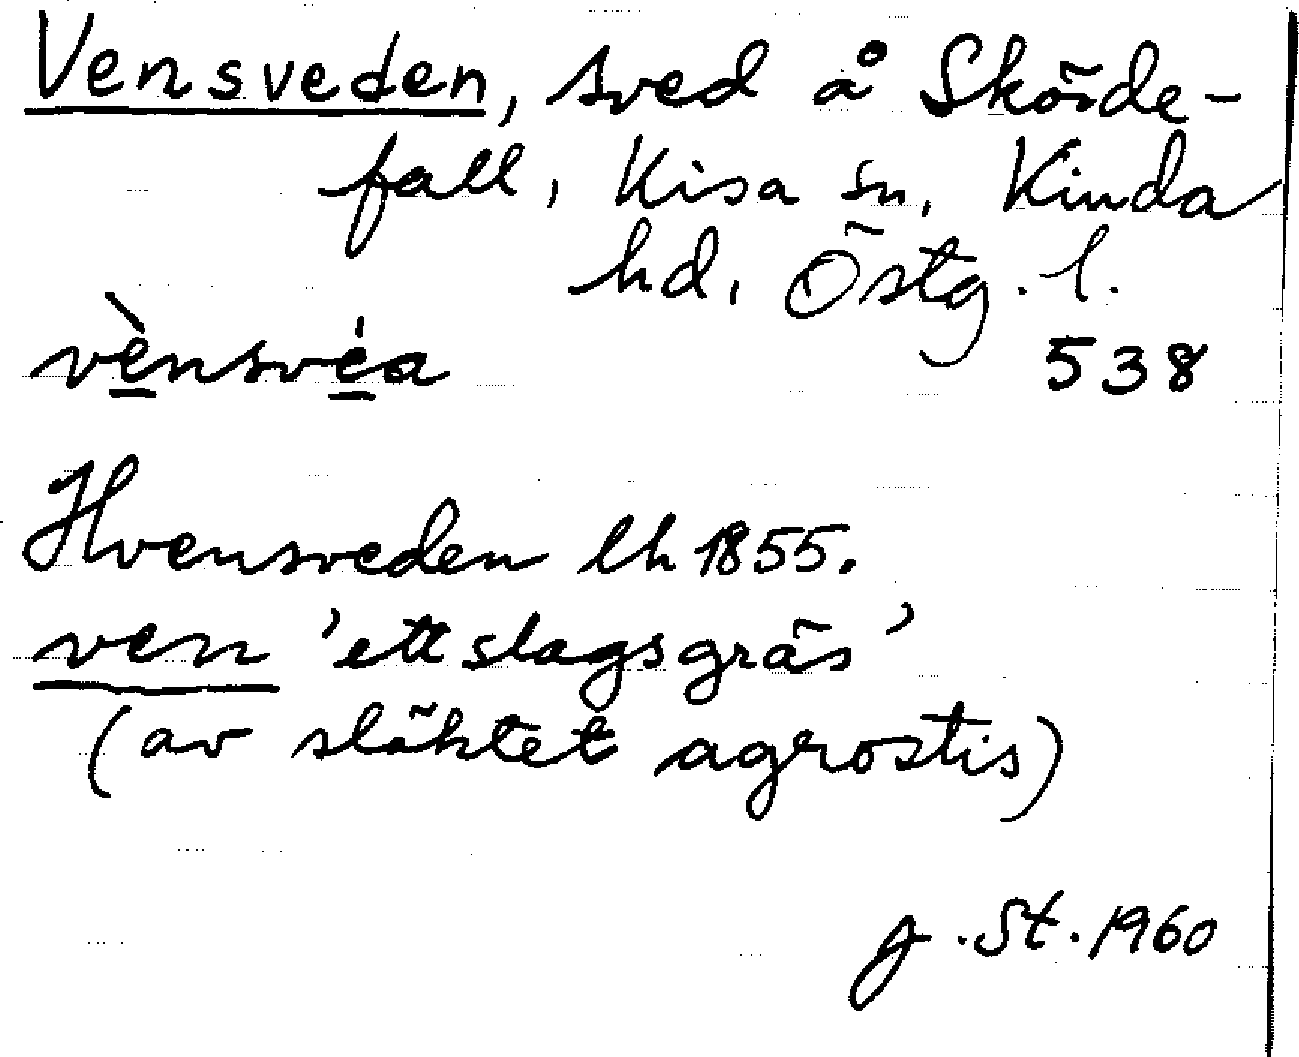 Vensveden, sved å Skörde-
fall, Kisa sn, Kinda
hd, Östg. l.
vènsvéa 538
Hvensveden lh 1855.
ven 'ett slags gräs'
(av släktet agrostis)
J. St. 1960